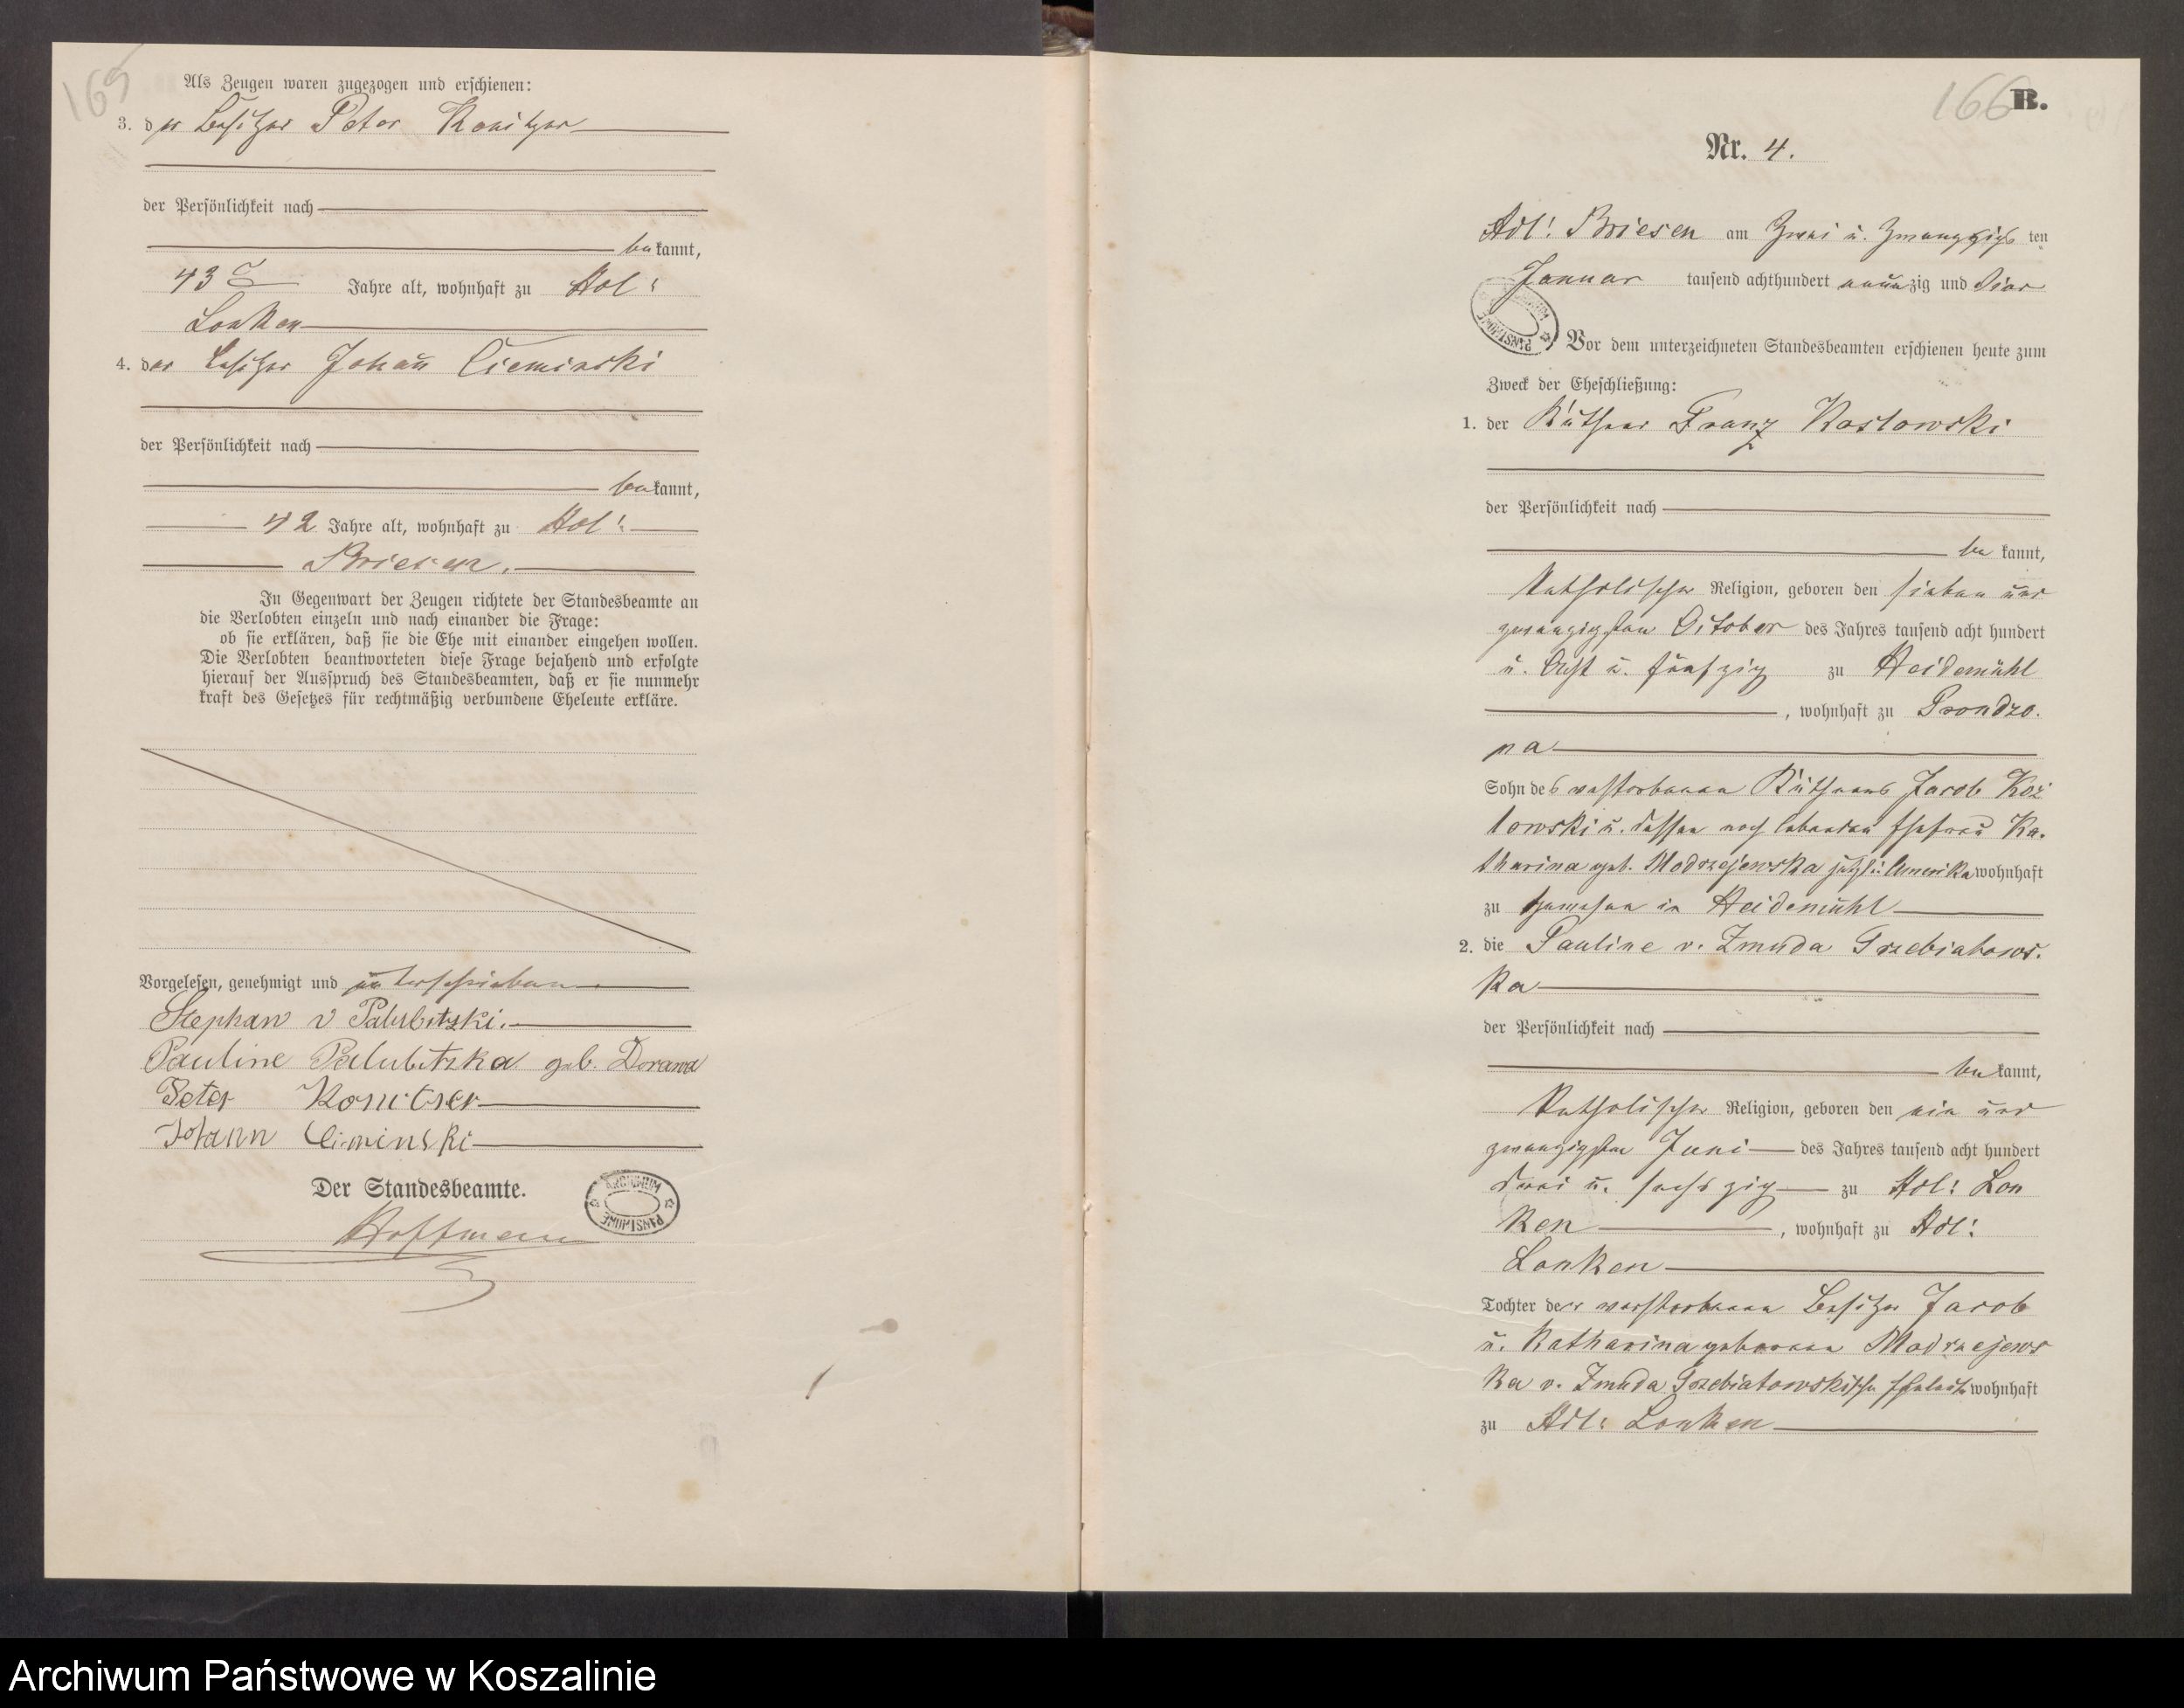 165
Als Zeugen waren zugezogen und erschienen:
3. der Besitzer Peter Konitzer
der Persönlichkeit nach
bekannt,
43 Jahre alt, wohnhaft zu Adl:
Lonken
4. der Besitzer Johann Cieminski
der Persönlichkeit nach
bekannt,
42 Jahre alt, wohnhaft zu Adl:
Briesen.
In Gegenwart der Zeugen richtete der Standesbeamte an
die Verlobten einzeln und nach einander die Frage:
ob sie erklären, daß sie die Ehe mit einander eingehen wollen.
Die Verlobten beantworteten diese Frage bejahend und erfolgte
hierauf der Ausspruch des Standesbeamten, daß er sie nunmehr
kraft des Gesetzes für rechtmäßig verbundene Eheleute erkläre.
Vorgelesen, genehmigt und unterschrieben
Stephan v Palubitzki.
Pauline Palubitzka geb. Dorawa
Peter Konitzer
Johann Ciminski
Der Standesbeamte.
ARCHIWUM PAŃSTWOWE
Hoffmann
166 B.
Nr. 4.
Adl: Briesen am Zwei u. Zwanzigsten
Januar tausend achthundert neunzig und vier
ARCHIWUM PAŃSTWOWE
Vor dem unterzeichneten Standesbeamten erschienen heute zum
Zweck der Eheschließung:
1. der Käthner Franz Koslowski
der Persönlichkeit nach
bekannt,
katholischer Religion, geboren den sieben und
zwanzigsten October des Jahres tausend acht hundert
u. Acht u. fünfzig zu Heidemühl
, wohnhaft zu Prondzo-
na
Sohn des verstorbenen Käthners Jacob Koz
lowski u. dessen noch lebenden Ehefrau Ka-
tharina geb. Modrzejewska jetzt in Amerika wohnhaft
zu gewesen in Heidemühl
2. die Pauline v. Zmuda Trzebiatows-
ka
der Persönlichkeit nach
bekannt,
katholischer Religion, geboren den ein und
zwanzigsten Juni des Jahres tausend acht hundert
drei u. sechszig zu Adl: Lon
ken , wohnhaft zu Adl:
Lonken
Tochter der verstorbenen Besitzer Jacob
u. Katharina geborenen Modrzejews
ka v. Zmuda Trzebiatowskischen Eheleute wohnhaft
zu Adl: Lonken
Archiwum Państwowe w Koszalinie